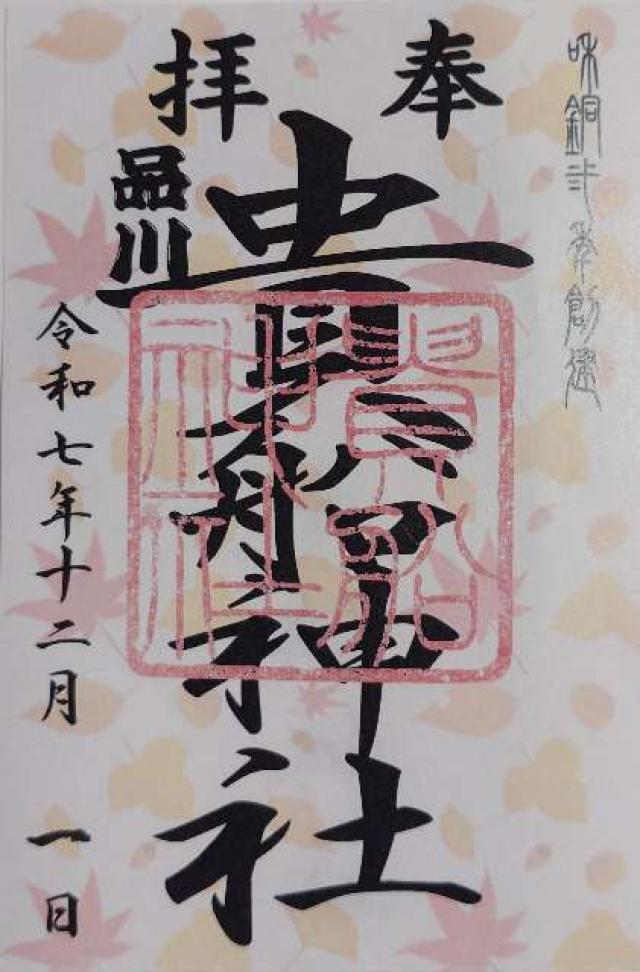 和銅弐年創建
奉拝
品川
貴船神社
貴船
神社
令和七年十二月 一日